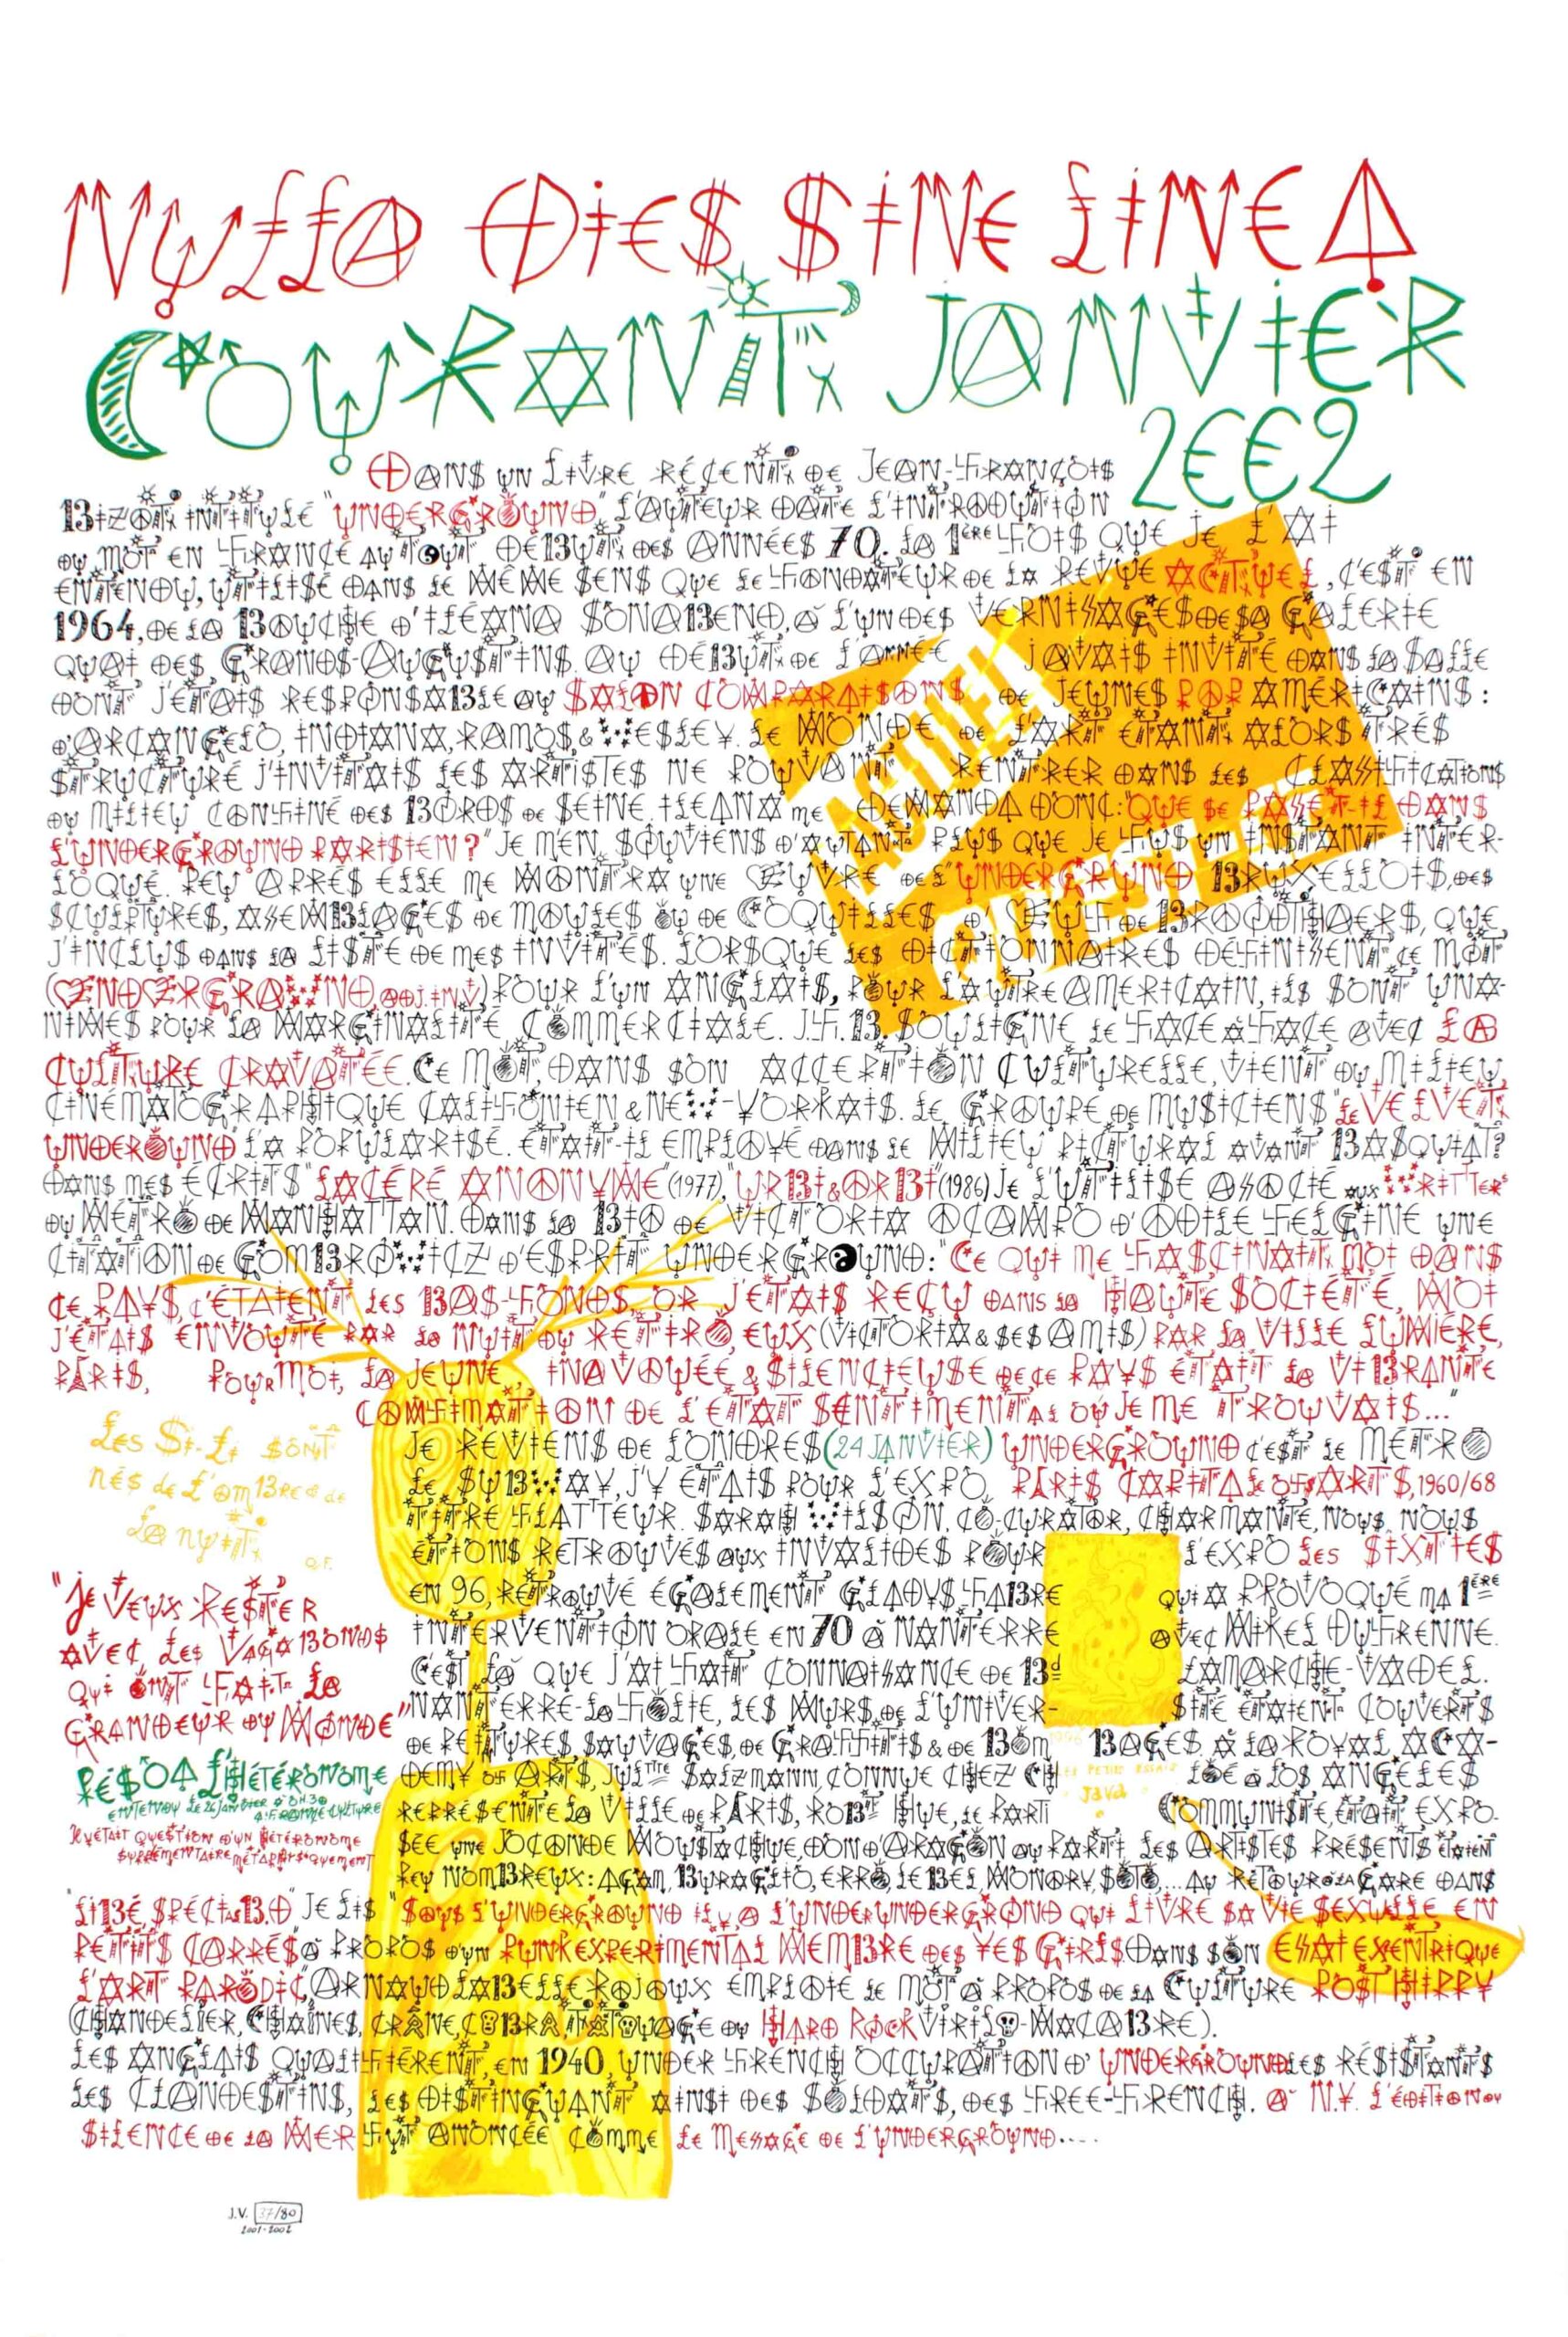 NULLA DIES SINE LINEA
COURANT JANVIER
2002
DANS UN LIVRE RÉCENT DE JEAN-FRANÇOIS
BIZOT INTITULÉ "UNDERGROUND", L'AUTEUR DATE L'INTRODUCTION
DU MOT EN FRANCE AU TOUT DEBUT DES ANNÉES 70. LA 1ÈRE FOIS QUE JE L'AI
ENTENDU, UTILISÉ DANS LE MÊME SENS QUE LE FONDATEUR DE LA REVUE ACTUEL, C'EST EN
1964, DE LA BOUCHE D'ILÉANA SONABEND, À L'UN DES VERNISSAGES DE SA GALERIE
QUAI DES GRANDS-AUGUSTINS. AU DÉBUT DE L'ANNÉE J'AVAIS INVITÉ DANS LA SALLE
DONT J'ÉTAIS RESPONSABLE AU SALON COMPARAISONS, DE JEUNES POP AMÉRICAINS :
D'ARCANGELO, INDIANA, RAMOS, & WESLEY. LE MONDE DE L'ART ÉTANT ALORS TRÈS
STRUCTURÉ J'INVITAIS LES ARTISTES NE POUVANT RENTRER DANS LES CLASSIFICATIONS
DU MILIEU CONFINÉ DES BORDS DE SEINE. ILEANA ME DEMANDA DONC : "QUE SE PASSE-T-IL DANS
L'UNDERGROUND PARISIEN ?" JE M'EN SOUVIENS D'AUTANT PLUS QUE JE FUS UN INSTANT INTER-
LOQUÉ. PEU APRÈS ELLE ME MONTRA UNE ŒUVRE DE L'"UNDERGRUND" BRUXELLOIS, DES
SCULPTURES, ASSEMBLAGES DE MOULES OU DE COQUILLES D'ŒUF DE BROODTHAERS, QUE
J'INCLUS DANS LA LISTE DE MES INVITÉS. LORSQUE LES DICTIONNAIRES DÉFINISSENT CE MOT
(ŒNDŒRGRAWND, ADJ.INV) POUR L'UN ANGLAIS, POUR L'AUTRE AMERICAIN, ILS SONT UNA-
NIMES POUR LA MARGINALITÉ COMMERCIALE. J.F.B. SOULIGNE LE FACE À FACE AVEC LA
CULTURE CRAVATÉE. CE MOT, DANS SON ACCEPTION CULTURELLE, VIENT DU MILIEU
CINÉMATOGRAPHIQUE CALIFONIEN & NEW-YORKAIS. LE GROUPE DE MUSICIENS "LE VELVET
UNDEROUND" L'A POPULARISÉ. ÉTAIT-IL EMPLOYÉ DANS LE MILIEU PICTURAL AVANT BASQUIAT ?
DANS MES ÉCRITS "LACÉRÉ ANONYME" (1977), "URBI & ORBI" (1986) JE L'UTILISE ASSOCIÉ AUX WRITTERS
DU MÉTRO DE MANHATTAN. DANS LA BIO DE VICTORIA OCAMPO D'ODILE FELGINE UNE
CITATION DE GOMBROWICZ D'ESPRIT UNDERGROUND : "CE QUI ME FASCINAIT MOI DANS
CE PAYS, C'ÉTAIENT LES BAS-FONDS, OR J'ÉTAIS REÇU DANS LA HAUTE SOCIÉTÉ, MOI
J'ÉTAIS ENVOUTÉ PAR LA NUIT DU RETIRO, EUX (VICTORIA & SES AMIS) PAR LA VILLE LUMIÈRE,
PARIS, POUR MOI, LA JEUNE INAVOUÉE & SILENCIEUSE DE CE PAYS ÉTAIT LA VIBRANTE
COMFIMATION DE L'ÉTAT SENTIMENTAL OÙ JE ME TROUVAIS..."
LES SI-LI SONT
NÉS DE L'OMBRE DE
LA NUIT.
JE REVIENS DE LONDRES (24 JANVIER) UNDERGROUND C'EST LE METRO
LE SUBWAY, J'Y ÉTAIS POUR L'EXPO, PARIS CAPITALE OF ARTS, 1960/68
TITRE FLATTEUR. SARAH WILSON, CO-CURATOR, CHARMANTE, NOUS NOUS
ÉTIONS RETROUVÉS AUX INVALIDES POUR L'EXPO LES SIXTIES
EN 96, RETROUVÉ ÉGALEMENT GLADYS FABRE QUI A PROVOQUÉ MA 1ÈRE
INTERVENTION ORALE EN 70 À NANTERRE AVEC MIKEL DUFRENNE.
C'EST LÀ QUE J'AI FAIT CONNAISSANCE DE Bd LAMARCHE-VADEL.
NANTERRE-LA-FOLIE, LES MURS DE L'UNIVER- SITÉ ÉTAIENT COUVERTS
DE PEINTURES SAUVAGES, DE GRAFFITIS & DE BOM BAGES. À LA ROYAL ACA-
DEMY OF ARTS, JULTTE SALZMANN, CONNUE CHEZ CH LOÉ À LOS ANGELES
REPRÉSENTE LA VILLE DE PARIS, ROBT HUE, LE PARTI COMMUNISTE, ÉTAIT EXPO-
SÉE UNE JOCONDE MOUSTACHUE, DON D'ARAGON AU PARTI. LES ARTISTES PRÉSENTS ÉTAIENT
PEU NOMBREUX : AGAM, BURAGLIO, ERRO, LEBEL, MONORY, SOTO, ... AU RETOUR À LA GARE DANS
"JE VEUX RESTER
AVEC LES VAGABONDS
QUI ONT FAIT LA
GRANDEUR DU MONDE"
PESSOA L'HÉTÉRONOME
ENTENDU LE 26 JANVIER À 0H30
À FRANCE-CULTURE
IL ÉTAIT QUESTION D'UN HÉTÉRONOME
SUPPLÉMENTAIRE MÉTAPHYSIQUEMENT
"LIBÉ, SPÉCIAL B.D" JE LIS "SOUS L'UNDERGROUND IL Y A L'UNDERUNDERGROND QUI LIVRE SA VIE SEXUELLE EN
PETITS CARRÉS À PROPOS D'UN PUNK EXPERIMENTAL MEMBRE DES YES GIRLS. DANS SON ESSAI EXENTRIQUE
L'ART PARODIC, ARNAUD LABELLE-ROJOUX EMPLOIE LE MOT À PROPOS DE LA CULTURE POST HIPPY
(CHANDELIER, CHAINES, CRÂNE, COBRA, TATOUAGE DU HARD ROCK VIRILO-MACABRE).
LES ANGLAIS QUALIFIÈRENT, EN 1940, UNDER FRENCH OCCUPATION D'UNDERGROUND LES RÉSISTANTS
LES CLANDESTINS, LES DISTINGUANT AINSI DES SOLDATS, DES FREE-FRENCH. À N.Y. L'ÉDITION DU
SILENCE DE LA MER FUT ANONCÉE COMME LE MESSAGE DE L'UNDERGROUND....
J.V. 37/80
2001-2002